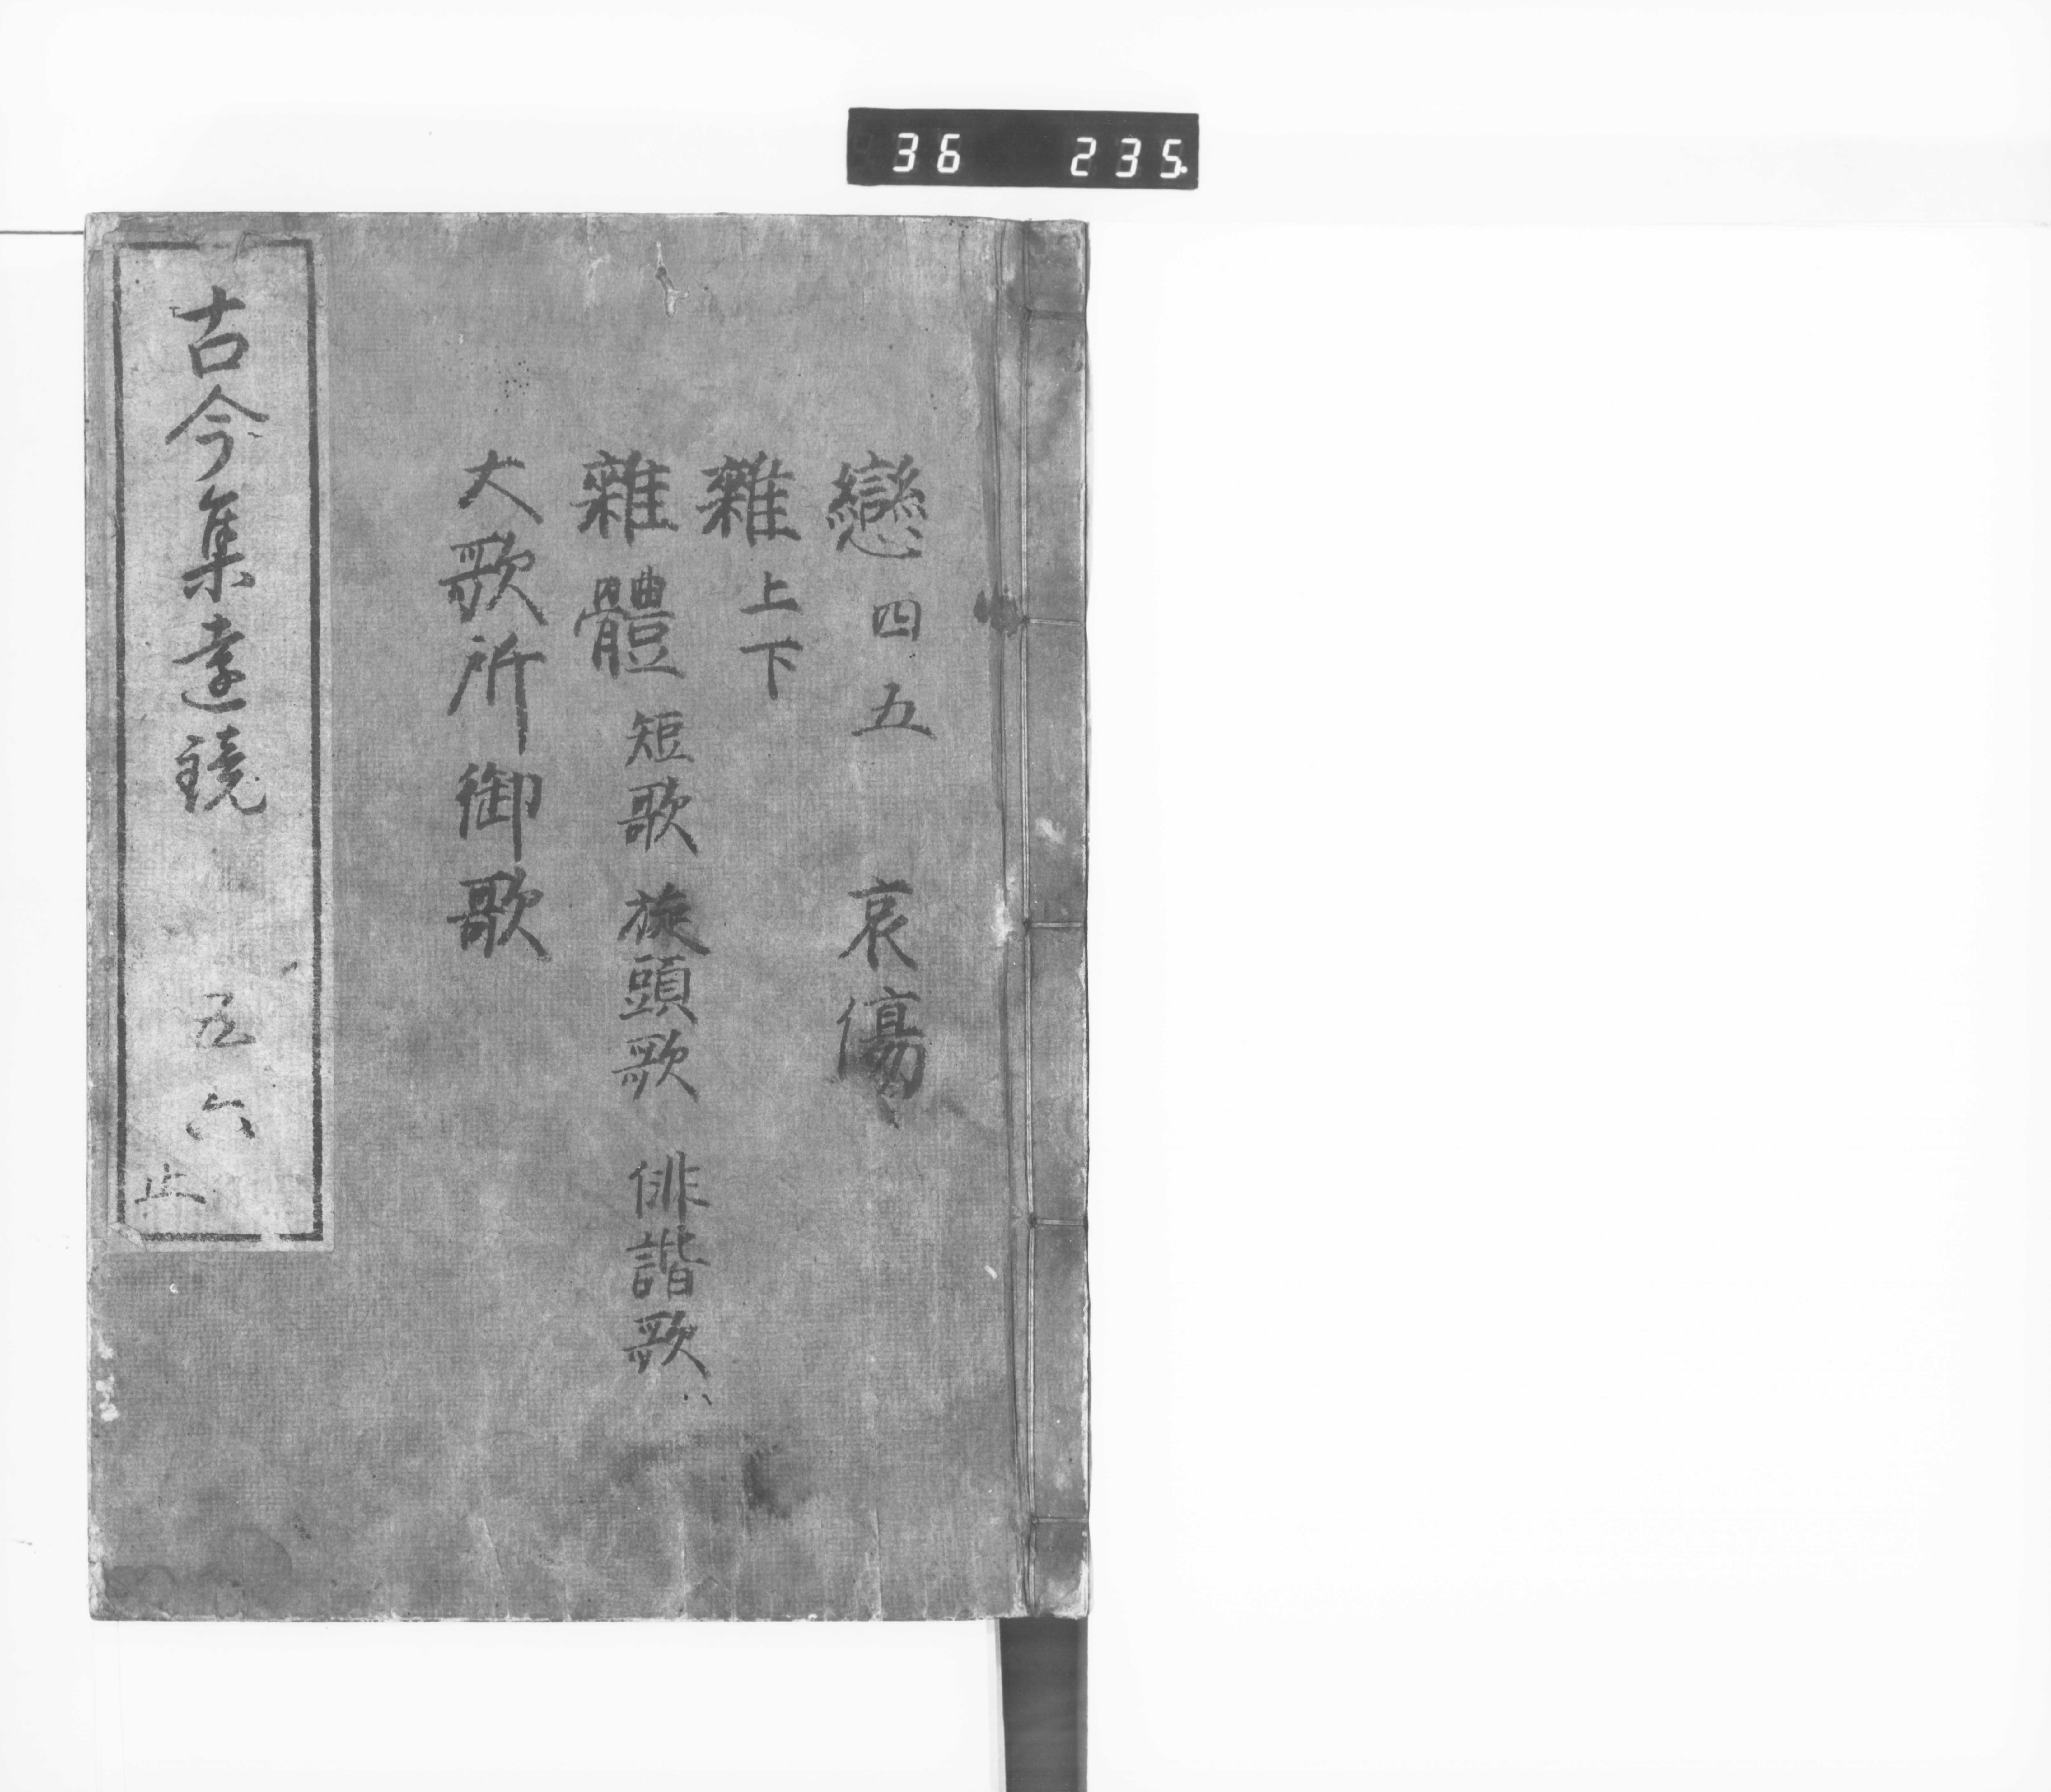 36 235.
戀四五 哀傷
雜上下
雜體 短歌 旋頭歌 俳諧歌
大歌所御歌
古今集遠鏡 五六
止